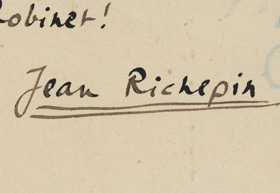 Robinet!
Jean Richepin